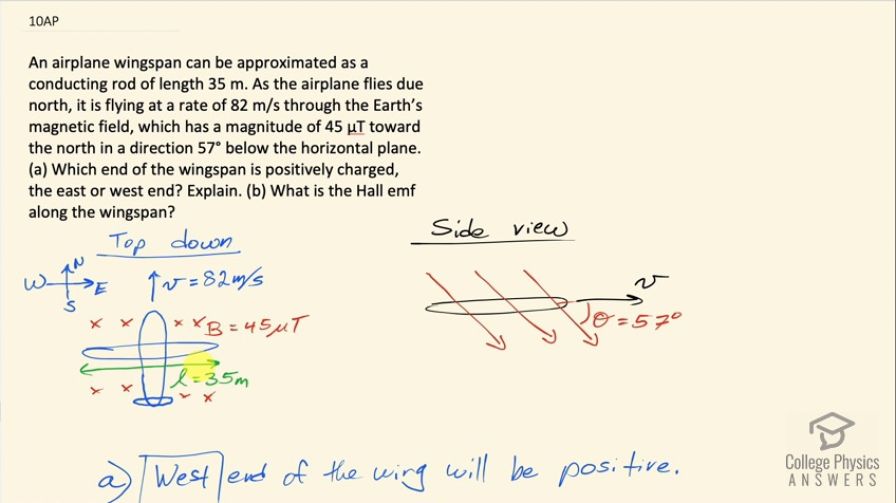 10AP
An airplane wingspan can be approximated as a
conducting rod of length 35 m. As the airplane flies due
north, it is flying at a rate of 82 m/s through the Earth's
magnetic field, which has a magnitude of 45 µT toward
the north in a direction 57° below the horizontal plane.
(a) Which end of the wingspan is positively charged,
the east or west end? Explain. (b) What is the Hall emf
along the wingspan?
Top down
Side view
N
W E
S
v = 82m/s
v
x x x x B = 45µT
θ = 57°
l = 35m
x x x x
a) West end of the wing will be positive.
College Physics
ANSWERS